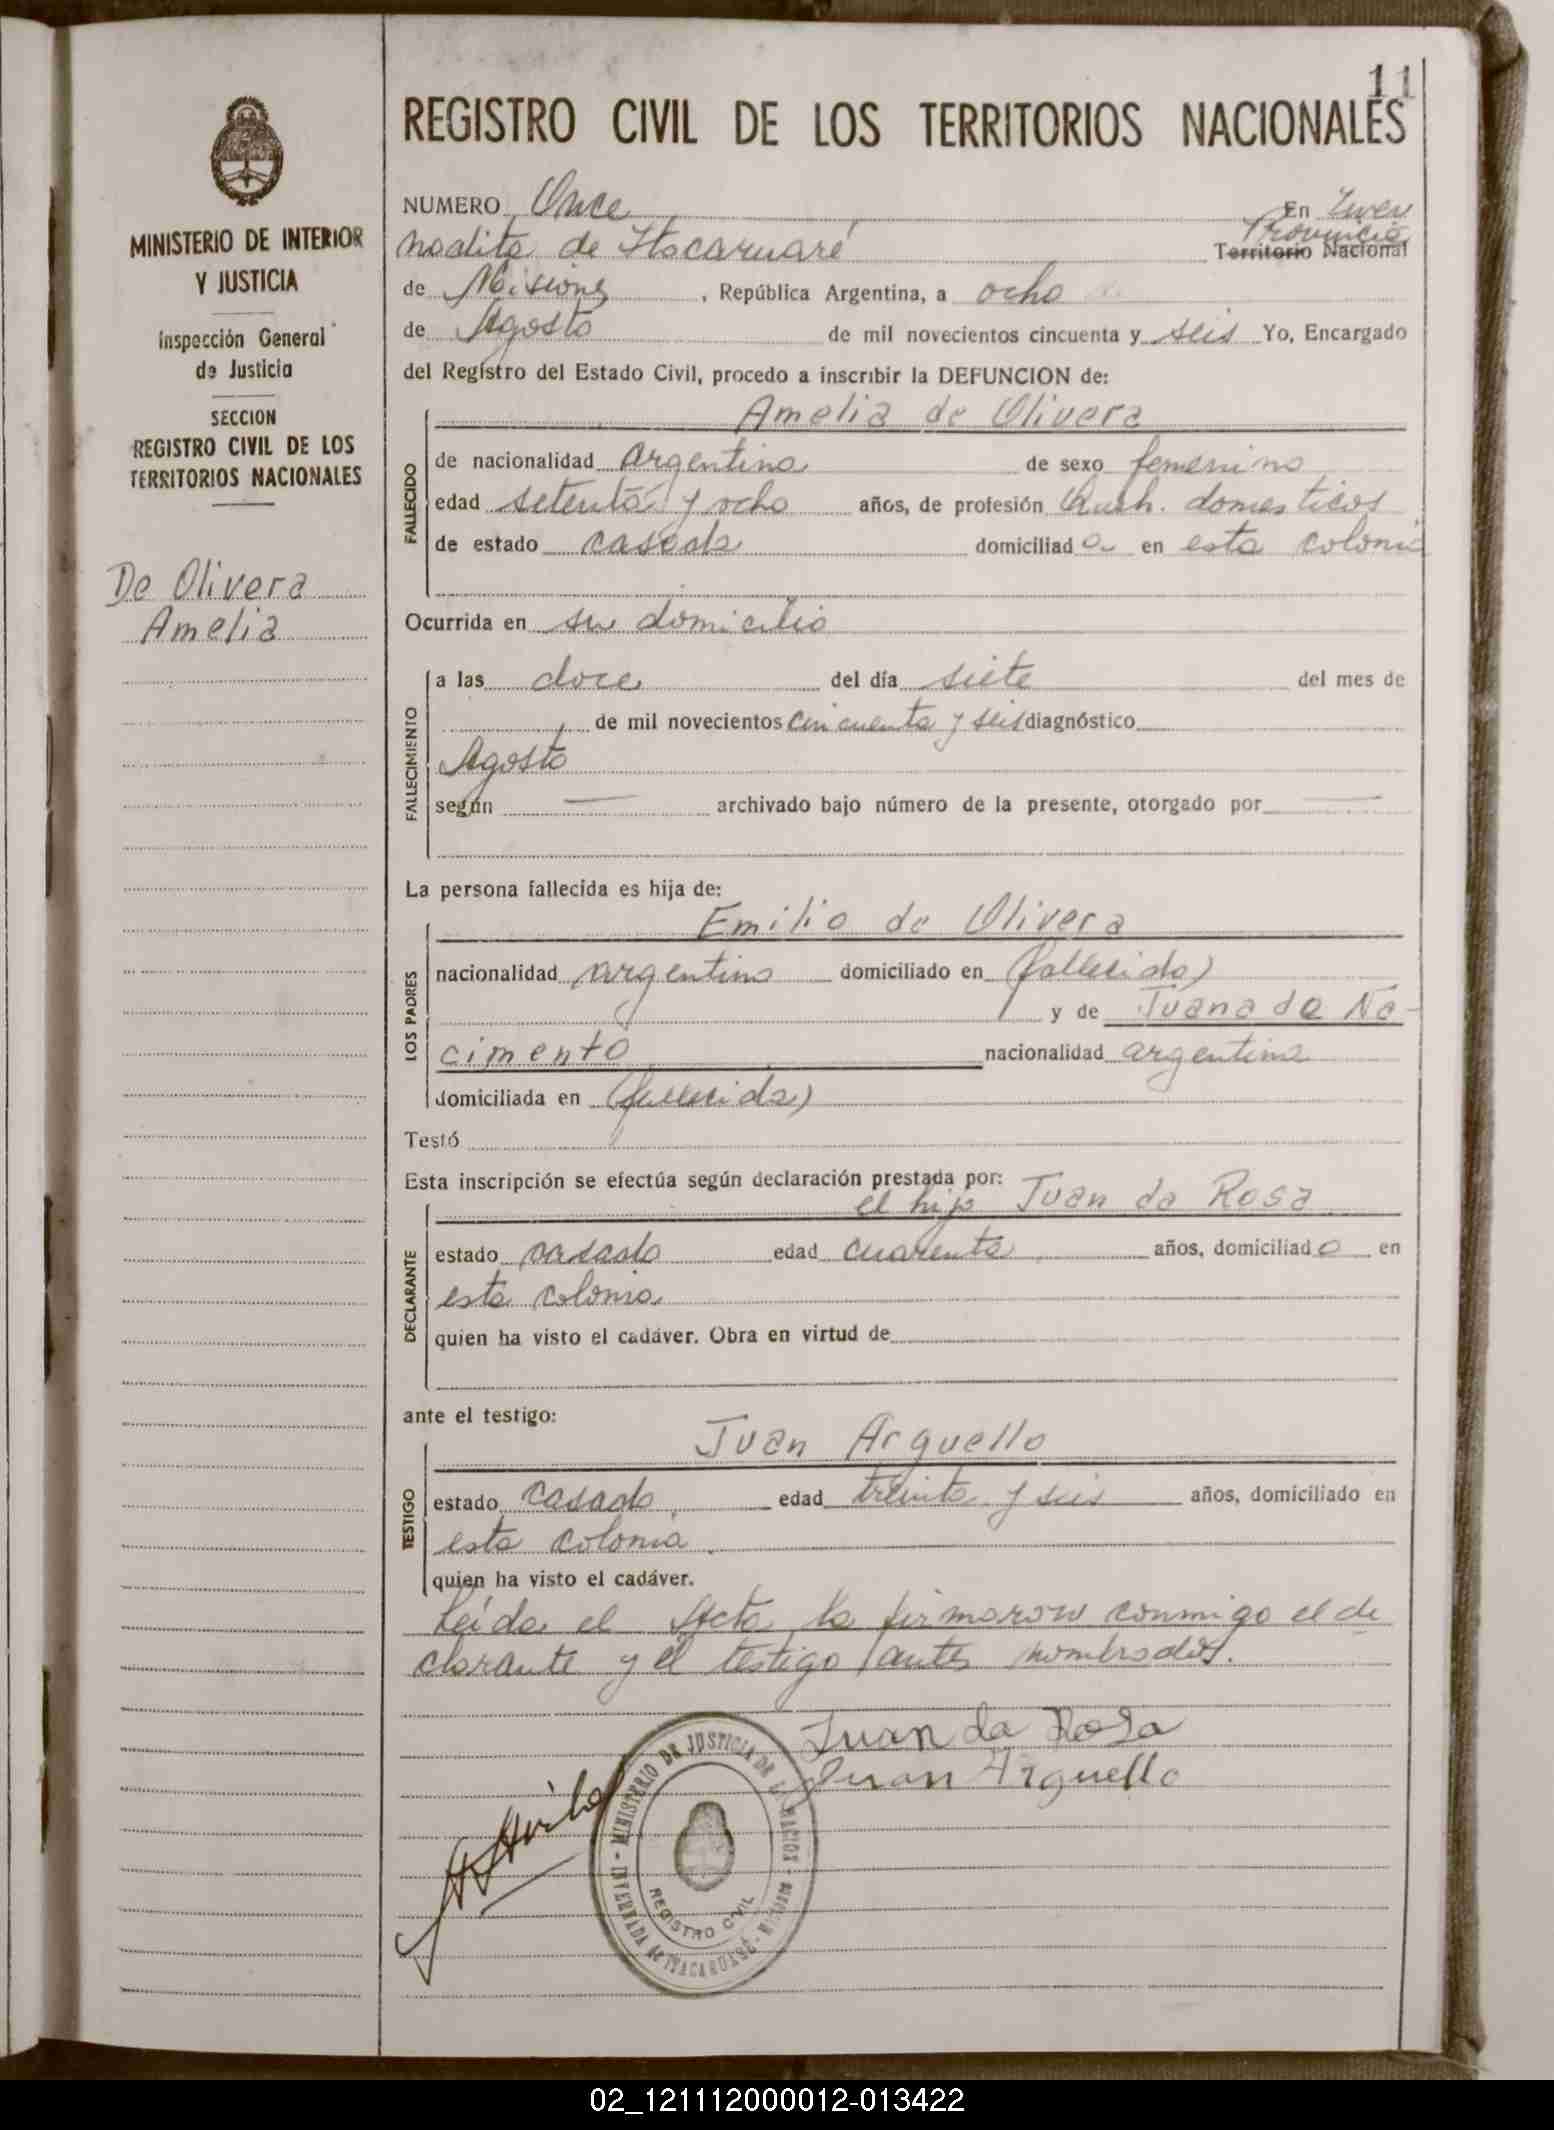 11
REGISTRO CIVIL DE LOS TERRITORIOS NACIONALES
MINISTERIO DE INTERIOR
Y JUSTICIA
Inspección General
de Justicia
SECCION
REGISTRO CIVIL DE LOS
TERRITORIOS NACIONALES
De Olivera
Amelia
NUMERO Once En Inver
Provincia
nadita de Itacaruaré Territorio Nacional
de Misiones, República Argentina, a ocho
de Agosto de mil novecientos cincuenta y seis Yo, Encargado
del Registro del Estado Civil, procedo a inscribir la DEFUNCION de:
Amelia de Olivera
FALLECIDO
de nacionalidad argentina de sexo femenino
edad setenta y ocho años, de profesión Queh. domesticos
de estado casada domiciliada en esta coloni
Ocurrida en su domicilio
FALLECIMIENTO
a las doce del día siete del mes de
de mil novecientos cincuenta y seis diagnóstico
Agosto
según — archivado bajo número de la presente, otorgado por —
La persona fallecida es hija de:
Emilio de Olivera
LOS PADRES
nacionalidad argentino domiciliado en (fallecido)
y de Juana de Na-
cimento nacionalidad argentina
domiciliada en (fallecida)
Testó
Esta inscripción se efectúa según declaración prestada por:
el hijo Juan da Rosa
DECLARANTE
estado casado edad cuarenta años, domiciliado en
esta colonia
quien ha visto el cadáver. Obra en virtud de
ante el testigo:
Juan Arguello
TESTIGO
estado casado edad treinta y seis años, domiciliado en
esta colonia
quien ha visto el cadáver.
Leída el Acta, la firmaron conmigo el de
clarante y el testigo antes nombrados.
Juan da Rosa
Juan Arguello
MINISTERIO DE JUSTICIA DE LA NACION
REGISTRO CIVIL
02_121112000012-013422